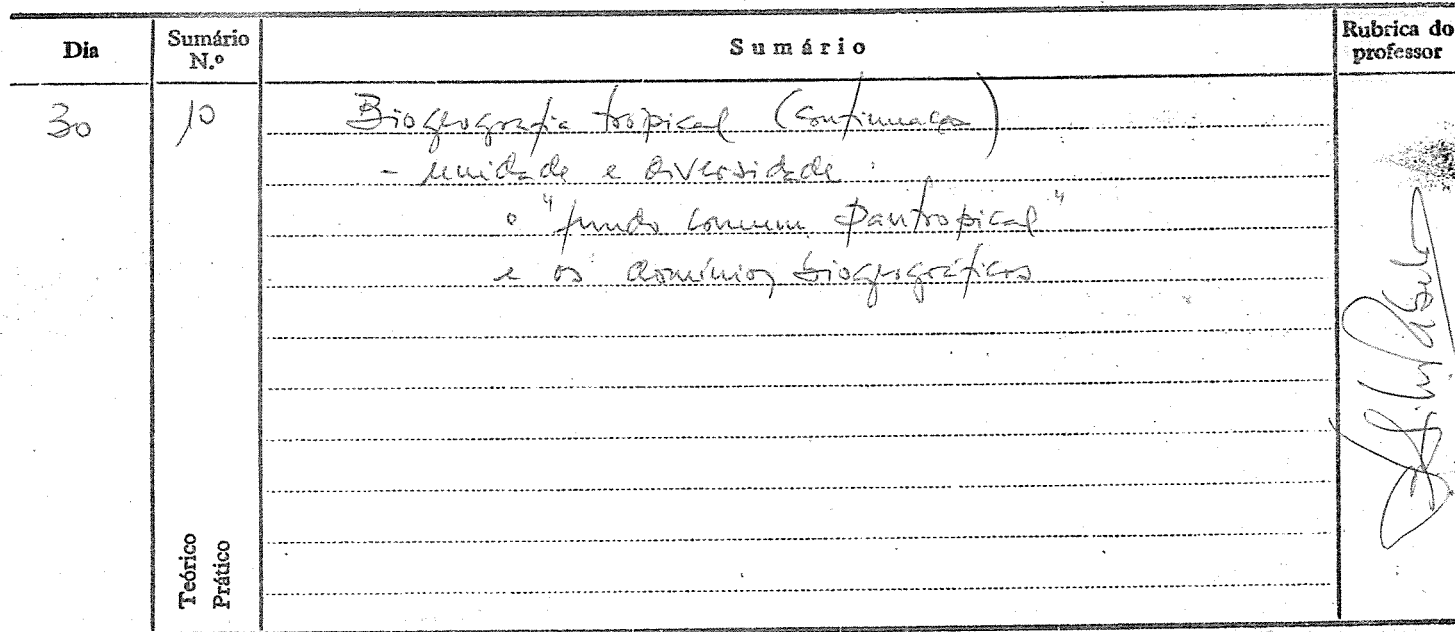 Dia
Sumário N.º
Sumário
Rubrica do professor
30
10
Biogeografia tropical (continuação)
- unidade e diversidade:
o "fundo comum pantropical"
e os domínios biogeográficos
Teórico
Prático